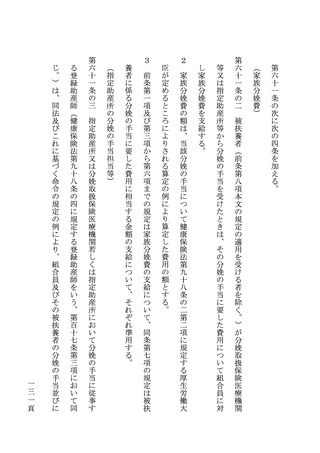 第六十一条の次に次の四条を加える。
（家族分娩費）
第六十一条の二　被扶養者（前条第八項本文の規定の適用を受ける者を除く。）が分娩取扱保険医療機関
等又は指定助産所等から分娩の手当を受けたときは、その分娩の手当に要した費用について組合員に対
し家族分娩費を支給する。
２　家族分娩費の額は、当該分娩の手当について健康保険法第九十八条の二第二項に規定する厚生労働大
臣が定めるところによりされる算定の例により算定した費用の額とする。
３　前条第二項及び第三項から第六項までの規定は家族分娩費の支給について、同条第七項の規定は被扶
養者に係る分娩の手当に要した費用に相当する金額の支給について、それぞれ準用する。
（指定助産所の分娩の手当担当等）
第六十一条の三　指定助産所又は分娩取扱保険医療機関若しくは指定助産所において分娩の手当に従事す
る登録助産師（健康保険法第九十八条の四に規定する登録助産師をいう。第百十七条第三項において同
じ。）は、同法及びこれに基づく命令の規定の例により、組合員及びその被扶養者の分娩の手当並びに
一三一頁